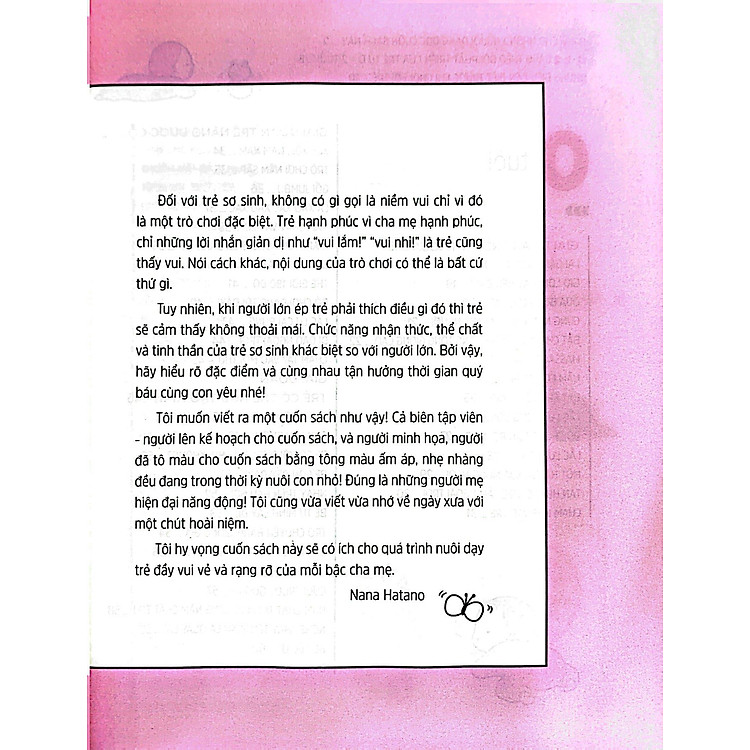 Đối với trẻ sơ sinh, không có gì gọi là niềm vui chỉ vì đó
là một trò chơi đặc biệt. Trẻ hạnh phúc vì cha mẹ hạnh phúc,
chỉ những lời nhắn giản dị như “vui lắm!” “vui nhỉ!” là trẻ cũng
thấy vui. Nói cách khác, nội dung của trò chơi có thể là bất cứ
thứ gì.
Tuy nhiên, khi người lớn ép trẻ phải thích điều gì đó thì trẻ
sẽ cảm thấy không thoải mái. Chức năng nhận thức, thể chất
và tinh thần của trẻ sơ sinh khác biệt so với người lớn. Bởi vậy,
hãy hiểu rõ đặc điểm và cùng nhau tận hưởng thời gian quý
báu cùng con yêu nhé!
Tôi muốn viết ra một cuốn sách như vậy! Cả biên tập viên
- người lên kế hoạch cho cuốn sách, và người minh họa, người
đã tô màu cho cuốn sách bằng tông màu ấm áp, nhẹ nhàng
đều đang trong thời kỳ nuôi con nhỏ! Đúng là những người mẹ
hiện đại năng động! Tôi cũng vừa viết vừa nhớ về ngày xưa với
một chút hoài niệm.
Tôi hy vọng cuốn sách này sẽ có ích cho quá trình nuôi dạy
trẻ đầy vui vẻ và rạng rỡ của mỗi bậc cha mẹ.
Nana Hatano